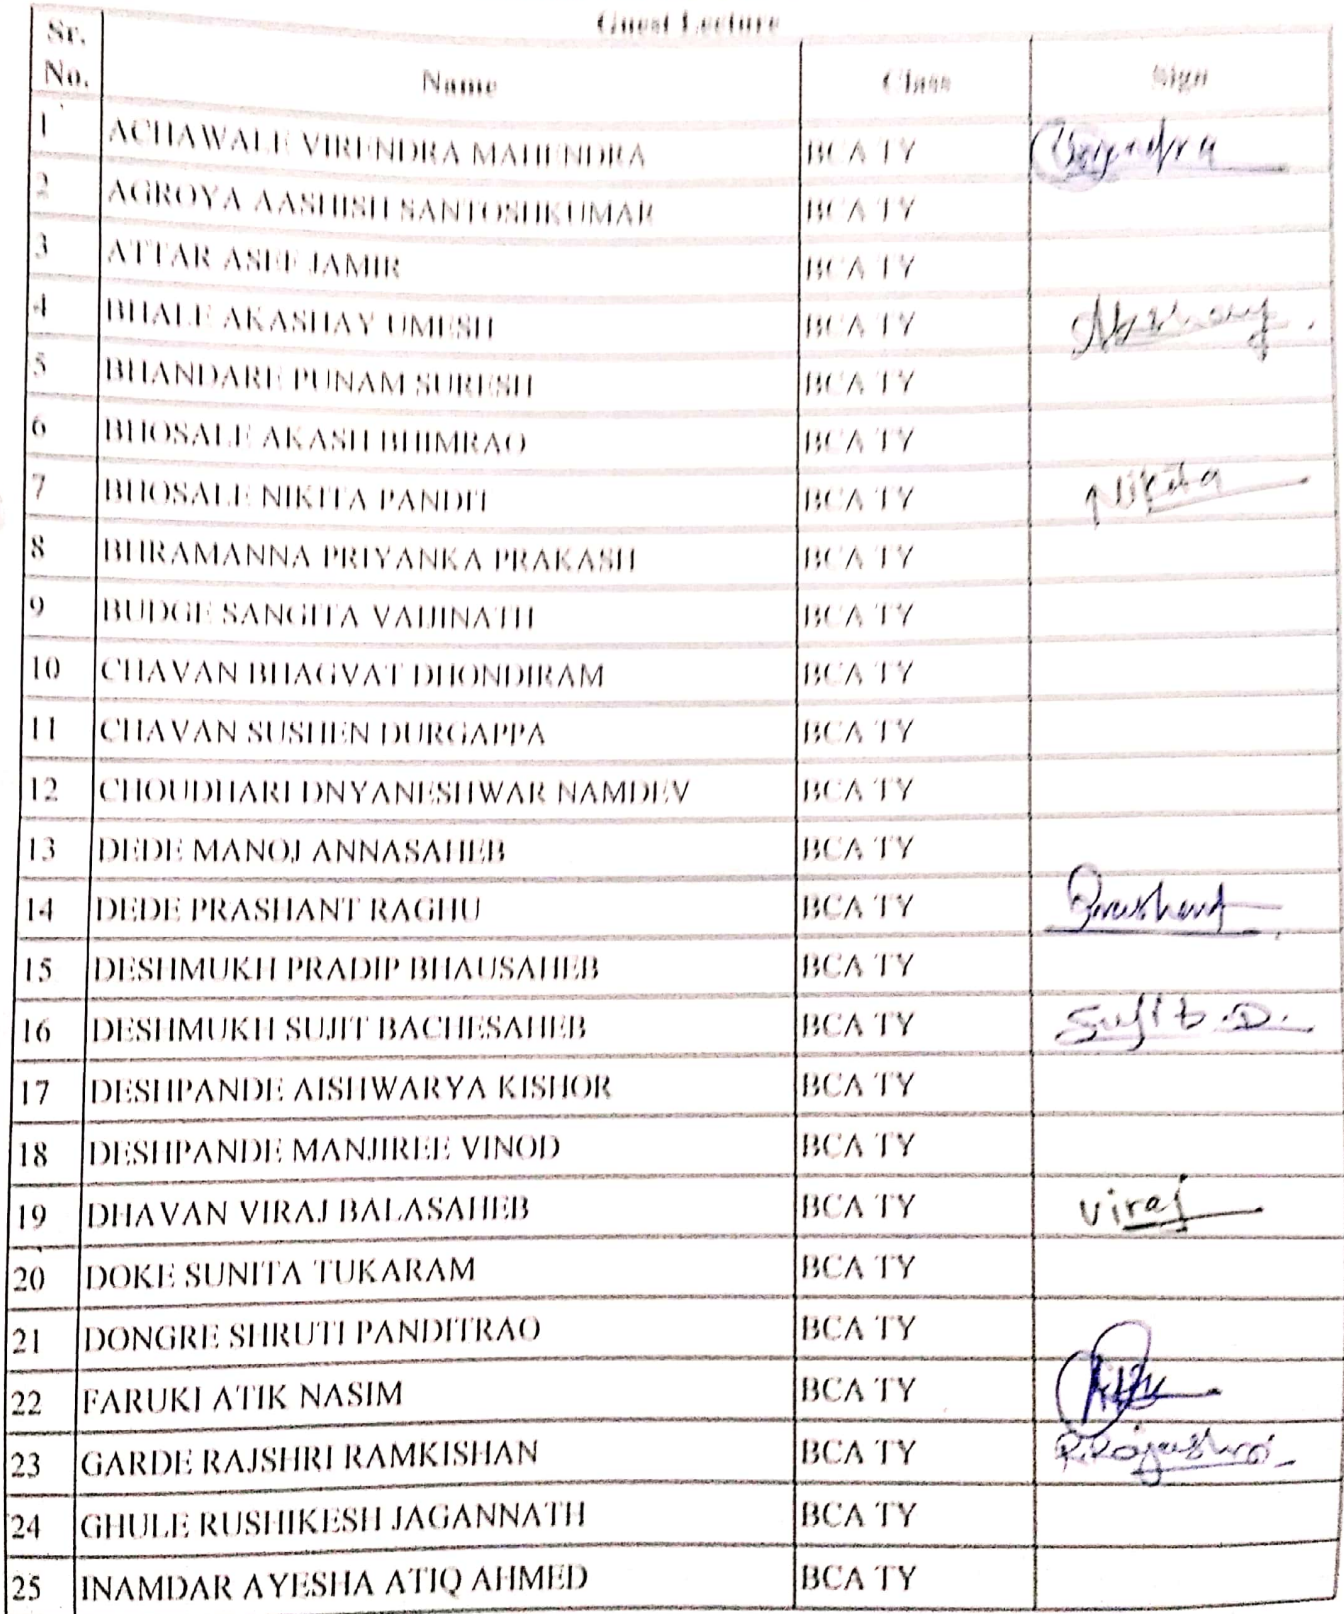 Guest Lecture
Sr. No. Name Class Sign
1 ACHAWALE VIRENDRA MAHENDRA BCA TY
2 AGROYA AASHISH SANTOSHKUMAR BCA TY
3 ATTAR ASEF JAMIR BCA TY
4 BHALE AKASHAY UMESH BCA TY Akshay.
5 BHANDARE PUNAM SURESH BCA TY
6 BHOSALE AKASH BHIMRAO BCA TY
7 BHOSALE NIKITA PANDIT BCA TY Nikita
8 BHRAMANNA PRIYANKA PRAKASH BCA TY
9 BUDGE SANGITA VAIJINATH BCA TY
10 CHAVAN BHAGVAT DHONDIRAM BCA TY
11 CHAVAN SUSHEN DURGAPPA BCA TY
12 CHOUDHARI DNYANESHWAR NAMDEV BCA TY
13 DEDE MANOJ ANNASAHEB BCA TY
14 DEDE PRASHANT RAGHU BCA TY Prashant
15 DESHMUKH PRADIP BHAUSAHEB BCA TY
16 DESHMUKH SUJIT BACHESAHEB BCA TY Sujit.D.
17 DESHPANDE AISHWARYA KISHOR BCA TY
18 DESHPANDE MANJIREE VINOD BCA TY
19 DHAVAN VIRAJ BALASAHEB BCA TY viraj
20 DOKE SUNITA TUKARAM BCA TY
21 DONGRE SHRUTI PANDITRAO BCA TY
22 FARUKI ATIK NASIM BCA TY
23 GARDE RAJSHRI RAMKISHAN BCA TY R.Rajashri
24 GHULE RUSHIKESH JAGANNATH BCA TY
25 INAMDAR AYESHA ATIQ AHMED BCA TY